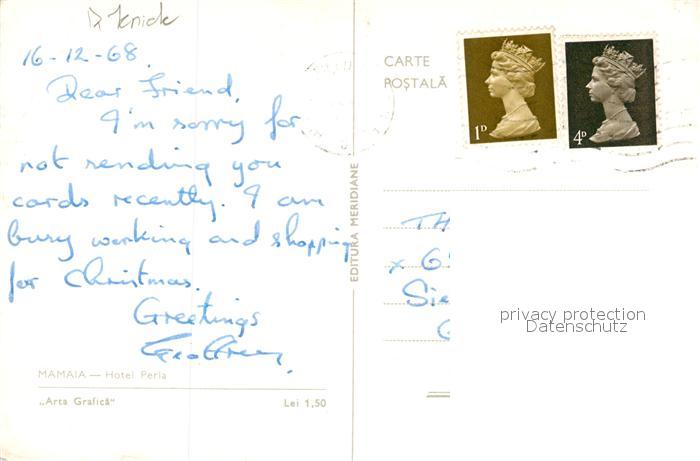 16-12-68.
Dear Friend,
I'm sorry for
not sending you
cards recently. I am
busy working and shopping
for Christmas.
Greetings
MAMAIA — Hotel Perla
„Arta Grafică"
Lei 1,50
EDITURA MERIDIANE
CARTE
POȘTALĂ
1D
4D
TH
x 6
Sie
G
privacy protection
Datenschutz